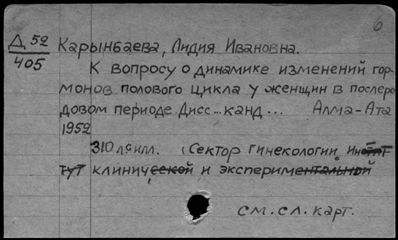 6
Д 52
405
Карынбаева, Лидия Ивановна.
К вопросу о динамике изменений гор-
монов полового цикла у женщин в послеро-
довом периоде Дисс... канд... Алма-Ата
1952
310 л с илл. (Сектор гинекологии Инстит
тут клинической и экспериментальной
см. сл. карт.